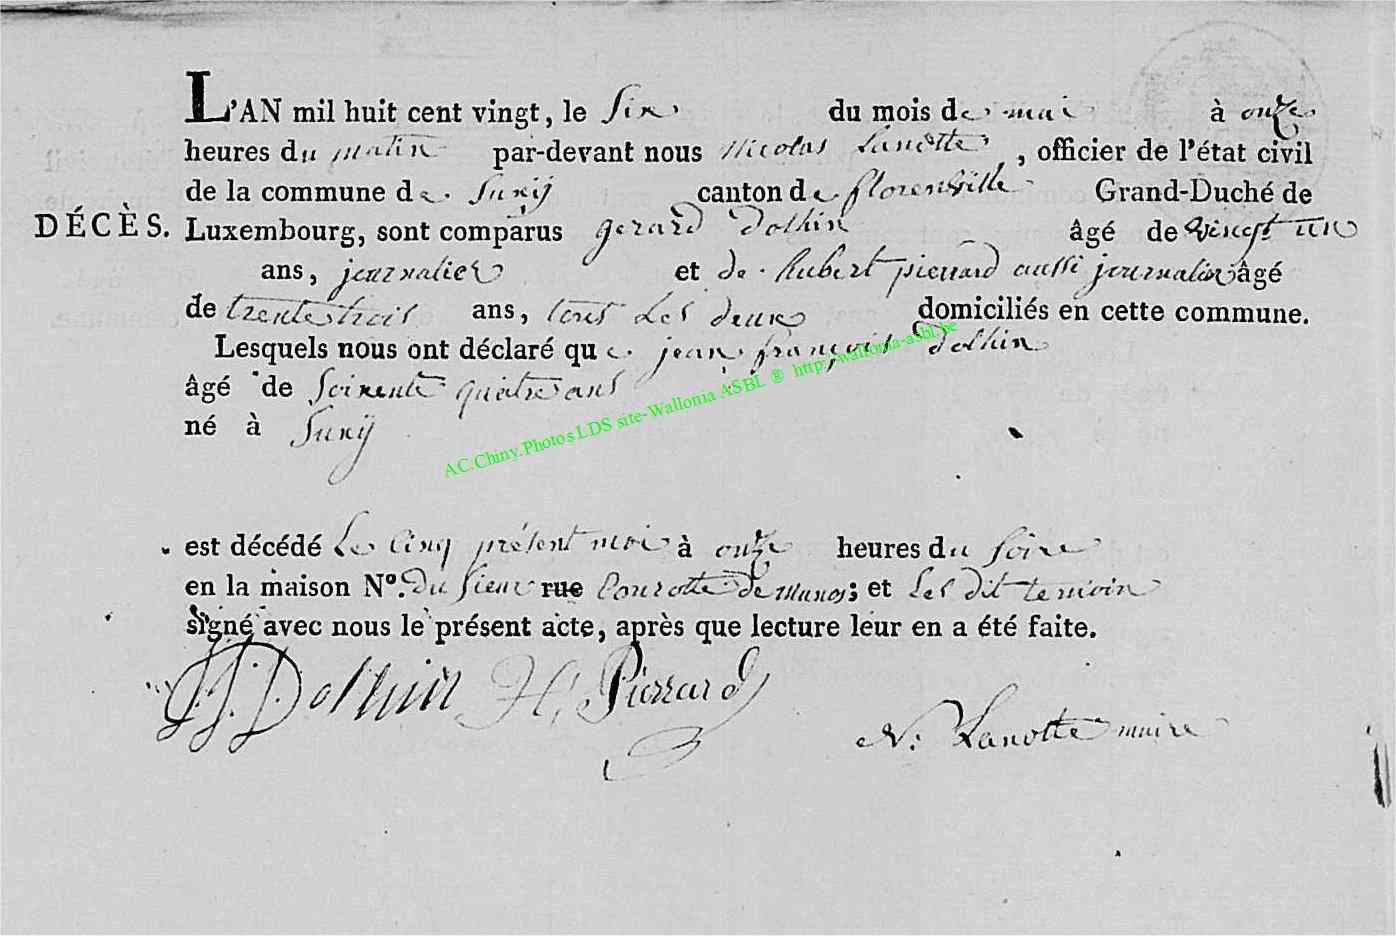 L'AN mil huit cent vingt, le Six du mois de mai à onze
heures du matin par-devant nous Nicolas Lanotte, officier de l'état civil
de la commune de Suxÿ canton de florenville Grand-Duché de
DÉCÈS. Luxembourg, sont comparus gerard dothin âgé de vinegt un
ans, journalier et de hubert pierrard aussi journalier âgé
de trente trois ans, tous les deux domiciliés en cette commune.
Lesquels nous ont déclaré que jean françois dothin
âgé de Soixente quatre ans
né à Suxÿ
AC.Chiny.Photos LDS site-Wallonia ASBL ® http://wallonia-asbl.be
est décédé Le Cinq présent moi à onze heures du Soire
en la maison N°. du Sieur rue de ; et Les dit temoin
signé avec nous le présent acte, après que lecture leur en a été faite.
Dothin H. Pierrard
N: Lanotte maire